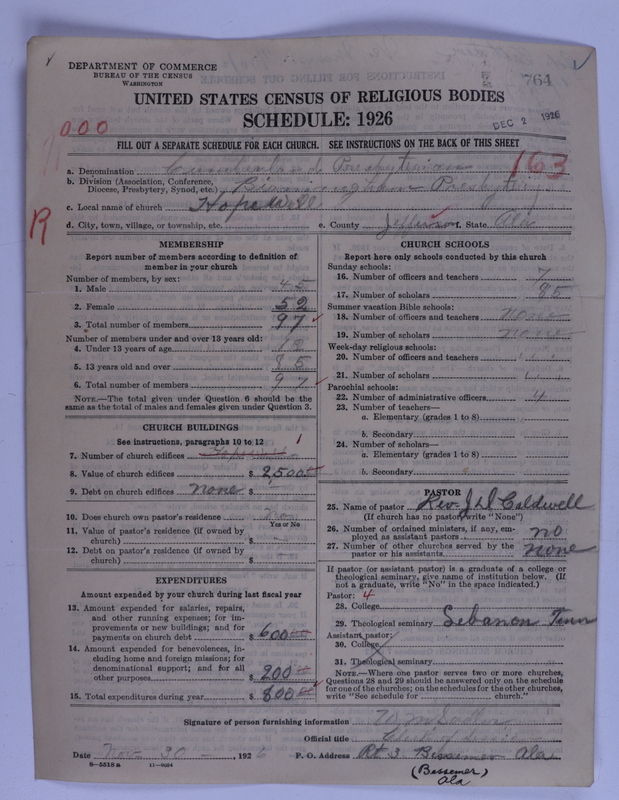 DEPARTMENT OF COMMERCE
BUREAU OF THE CENSUS
WASHINGTON
764
UNITED STATES CENSUS OF RELIGIOUS BODIES
SCHEDULE: 1926
DEC 2 1926
000
FILL OUT A SEPARATE SCHEDULE FOR EACH CHURCH. SEE INSTRUCTIONS ON THE BACK OF THIS SHEET
163
a. Denomination Cumberland Presbyterian
b. Division (Association, Conference, Diocese, Presbytery, Synod, etc.) Birmingham Presbytery
c. Local name of church Hopewell
R
d. City, town, village, or township, etc.
e. County Jefferson State Ala
MEMBERSHIP
Report number of members according to definition of member in your church
Number of members, by sex:
1. Male 45
2. Female 52
3. Total number of members 97
Number of members under and over 13 years old:
4. Under 13 years of age
5. 13 years old and over 85
6. Total number of members 97
NOTE.—The total given under Question 6 should be the same as the total of males and females given under Question 3.
CHURCH BUILDINGS
See instructions, paragraphs 10 to 12
7. Number of church edifices 1
8. Value of church edifices $ 2,500
9. Debt on church edifices None $
10. Does church own pastor's residence
Yes or No
11. Value of pastor's residence (if owned by church) $
12. Debt on pastor's residence (if owned by church) $
EXPENDITURES
Amount expended by your church during last fiscal year
13. Amount expended for salaries, repairs, and other running expenses; for improvements or new buildings; and for payments on church debt $ 600
14. Amount expended for benevolences, including home and foreign missions; for denominational support; and for all other purposes $ 200
15. Total expenditures during year $ 800
CHURCH SCHOOLS
Report here only schools conducted by this church
Sunday schools:
16. Number of officers and teachers 7
17. Number of scholars 85
Summer vacation Bible schools:
18. Number of officers and teachers none
19. Number of scholars none
Week-day religious schools:
20. Number of officers and teachers
21. Number of scholars
Parochial schools:
22. Number of administrative officers
23. Number of teachers—
a. Elementary (grades 1 to 8)
b. Secondary
24. Number of scholars—
a. Elementary (grades 1 to 8)
b. Secondary
PASTOR
25. Name of pastor Rev. J D Coldwell
(If church has no pastor, write "None")
26. Number of ordained ministers, if any, employed as assistant pastors no
27. Number of other churches served by the pastor or his assistants none
If pastor (or assistant pastor) is a graduate of a college or theological seminary, give name of institution below. (If not a graduate, write "No" in the space indicated.)
Pastor: 4
28. College
29. Theological seminary Lebanon Tenn
Assistant pastor:
30. College
31. Theological seminary
NOTE.—Where one pastor serves two or more churches, Questions 28 and 29 should be answered only on the schedule for one of the churches; on the schedules for the other churches, write "See schedule for church."
Signature of person furnishing information
Official title
Date Nov 30 1926 P. O. Address Rt 3 Bessemer Ala
8-5518a 11-9084
(Bessemer)
Ala